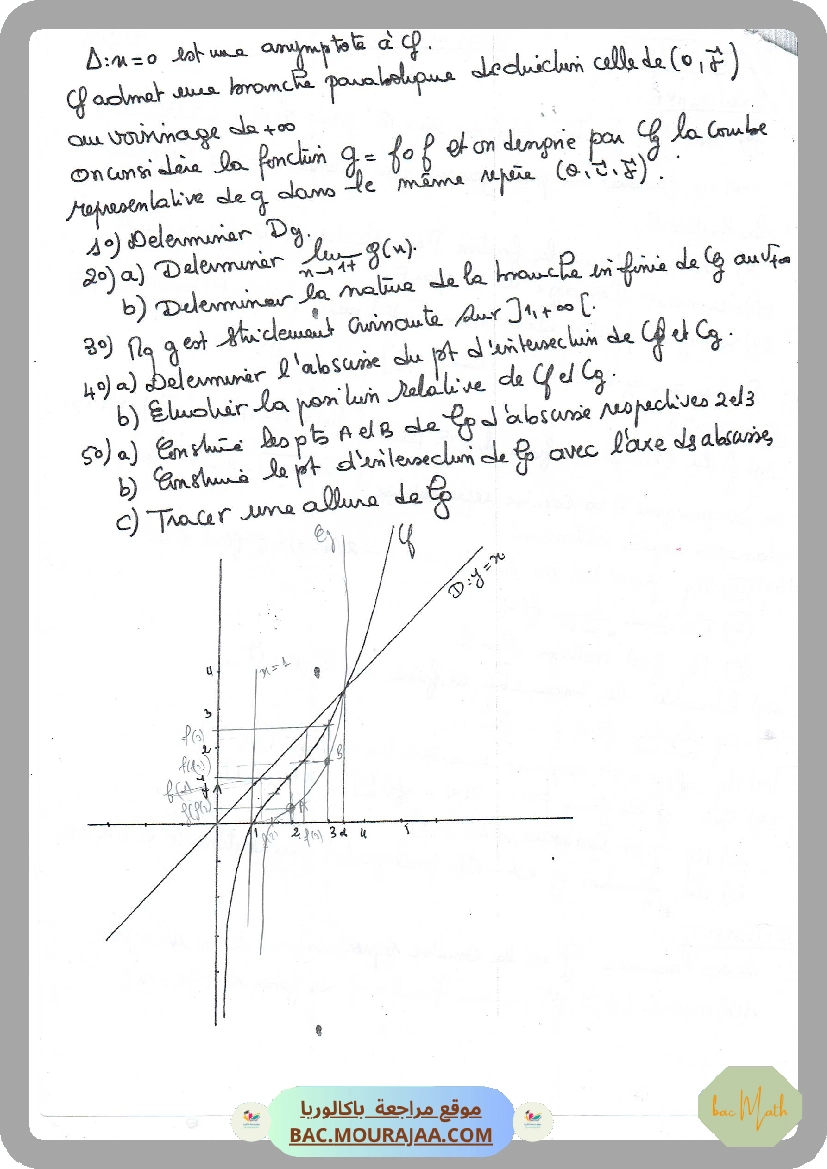 Δ: x=0 est une asymptote à Cf.
Cf admet une branche parabolique de direction celle de (O, j)
au voisinage de +∞
On considère la fonction g = f∘f et on designe par Cg la courbe
representative de g dans le même repère (O, i, j).
1°) Determiner Dg.
2°) a) Determiner lim g(x).
x→1+
b) Determiner la nature de la branche infinie de Cg au V +∞
3°) Mq g est strictement croissante sur ]1, +∞[.
4°) a) Determiner l'abscisse du pt d'intersection de Cf et Cg.
b) Etudier la position relative de Cf et Cg.
5°) a) Construire les pts A et B de Cg d'abscisse respectives 2 et 3
b) Construire le pt d'intersection de Cg avec l'axe ds abscisses
c) Tracer une allure de Cg
Cg Cf
D: y=x
x=1
4
3
f(3)
2
B
A
1 f(2) 2 f(3) 3 α 4 5
موقع مراجعة باكالوريا
BAC.MOURAJAA.COM
bac Math